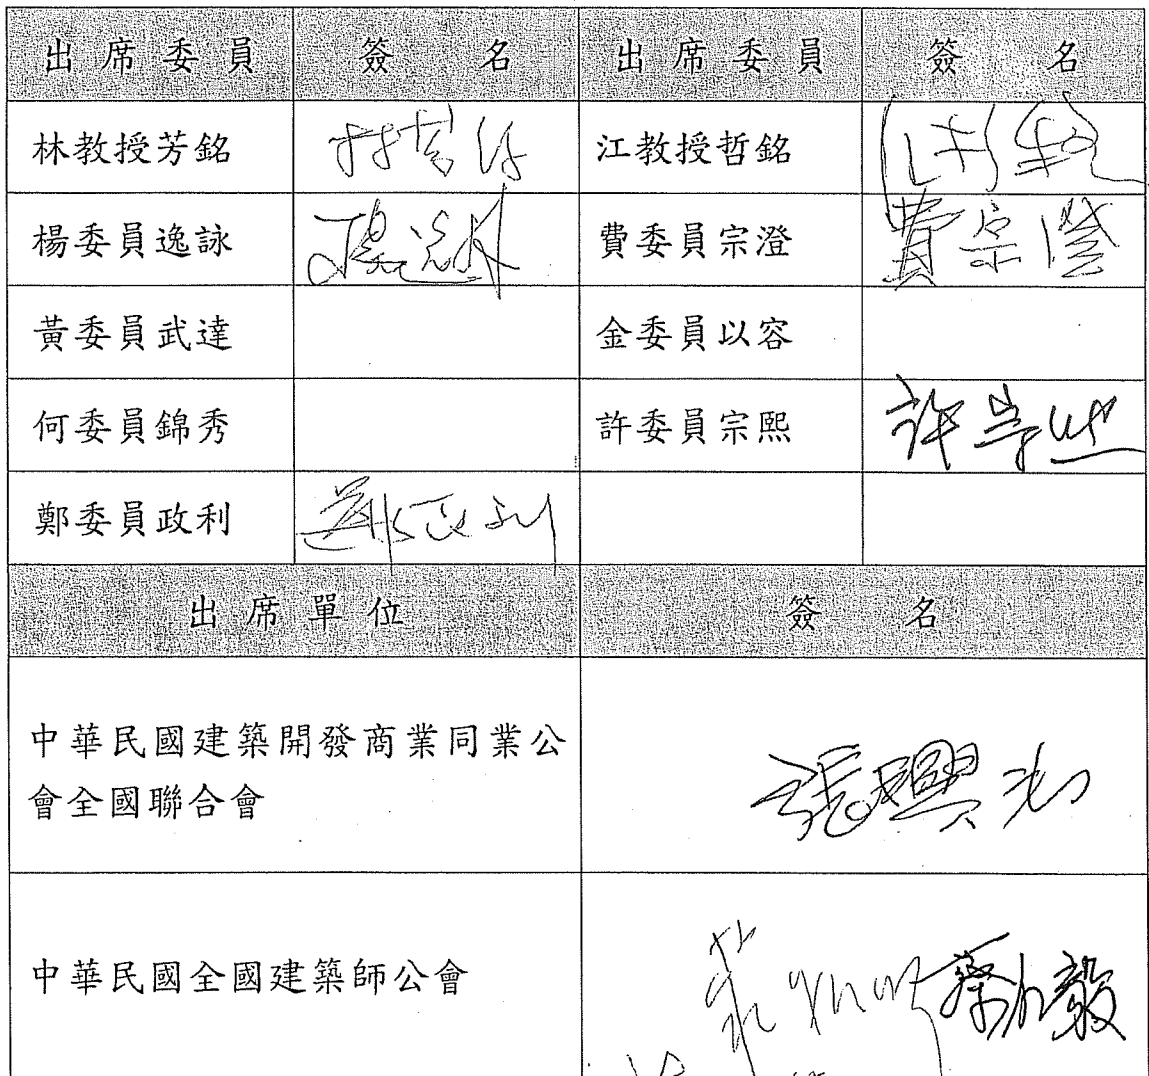 出席委員 簽名 出席委員 簽名
林教授芳銘 林芳銘 江教授哲銘 江哲銘
楊委員逸詠 楊逸詠 費委員宗澄 費宗澄
黃委員武達 金委員以容
何委員錦秀 許委員宗熙 許宗熙
鄭委員政利 鄭政利
出席單位 簽名
中華民國建築開發商業同業公
會全國聯合會 張興邦
中華民國全國建築師公會